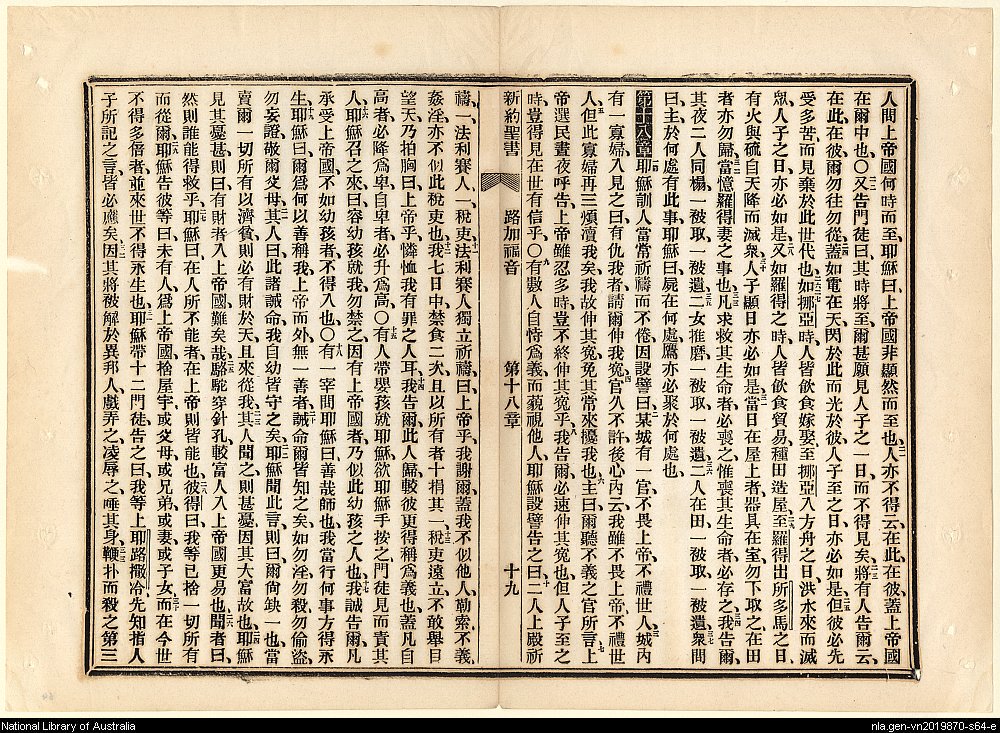 人間上帝國何時而至、耶穌曰、上帝國非顯然而至也、人亦不得云在此、在彼、蓋上帝國
在爾中也〇又告門徒曰、其時將至、爾甚願見人子之一日、而不得見矣、將有人告爾云、
在此、在彼、爾勿往、勿從、蓋如電在天、閃於此而光於彼、人子至之日、亦必如是、但彼必先
受多苦、而見棄於此世代也、如挪亞時、人皆飲食嫁娶、至挪亞入方舟之日、洪水來而滅
眾、人子之日、亦必如是、又如羅得之時、人皆飲食貿易、種田造屋、至羅得出所多馬之日、
有火與硫自天降而滅眾、人子顯日亦必如是、當日在屋上者、器具在室、勿下取之、在田
者亦勿歸、當憶羅得妻之事也、凡求救其生命者、必喪之、惟喪其生命者、必存之、我告爾、
其夜二人同榻、一被取、一被遺、二女推磨、一被取、一被遺、二人在田、一被取、一被遺、眾間
曰、主於何處有此事、耶穌曰、屍在何處、鷹亦必聚於何處也、
第十八章 耶穌訓人當常祈禱而不倦、因設譬曰、某城有一官、不畏上帝、不禮世人、城內
有一寡婦、入見之曰、有仇我者、請爾伸我冤、官久不許、後心內云、我雖不畏上帝、不禮世
人、但此寡婦再三煩瀆我矣、我故伸其冤、免其常來擾我也、主曰、爾聽不義之官所言、上
帝選民、晝夜呼告上帝、雖忍多時、豈不終伸其冤乎、我告爾、必速伸其冤也、但人子至之
時、豈得見在世有信乎〇有數人自恃爲義、而藐視他人、耶穌設譬告之曰、二人上殿祈
新約聖書 路加福音 第十八章 十九
禱、一法利賽人、一稅吏、法利賽人獨立祈禱曰、上帝乎、我謝爾、蓋我不似他人、勒索不義、
姦淫、亦不似此稅吏也、我七日中禁食二次、且以所有者十捐其一、稅吏遠立、不敢舉目
望天、乃拍胸曰、上帝乎、憐恤我有罪之人耳、我告爾、此人歸較彼更得稱爲義也、蓋凡自
高者必降爲卑、自卑者必升爲高〇有人帶嬰孩就耶穌、欲耶穌手按之、門徒見而責其
人、耶穌召之來曰、容幼孩就我、勿禁之、因有上帝國者、乃似此幼孩之人也、我誠告爾、凡
承受上帝國、不如幼孩者、不得入也〇有一宰問耶穌曰、善哉師也、我當行何事、方得永
生、耶穌曰、爾爲何以善稱我、上帝而外、無一善者、誡命爾皆知之矣、如勿淫、勿殺、勿偷盜、
勿妄證、敬爾父母、其人曰、此諸誡命、我自幼皆守之矣、耶穌聞此言、則曰、爾尚缺一也、當
賣爾一切所有、以濟貧、則必有財於天、且來從我、其人聞之則甚憂、因其大富故也、耶穌
見其憂甚、則曰、有財者入上帝國難矣哉、駱駝穿針孔、較富人入上帝國更易也、聞者曰、
然則誰能得救乎、耶穌曰、在人所不能者、在上帝則皆能也、彼得曰、我等已捨一切所有
而從爾、耶穌告彼等曰、未有人爲上帝國、捨屋宇、或父母、或兄弟、或妻、或子女、而在今世
不得多倍者、並來世不得永生也、耶穌帶十二門徒告之曰、我等上耶路撒冷、先知指人
子所記之言、皆必應矣、因其將被解於異邦人、戲弄之、凌辱之、唾其身、鞭扑而殺之、第三
National Library of Australia
nla.gen-vn2019870-s64-e